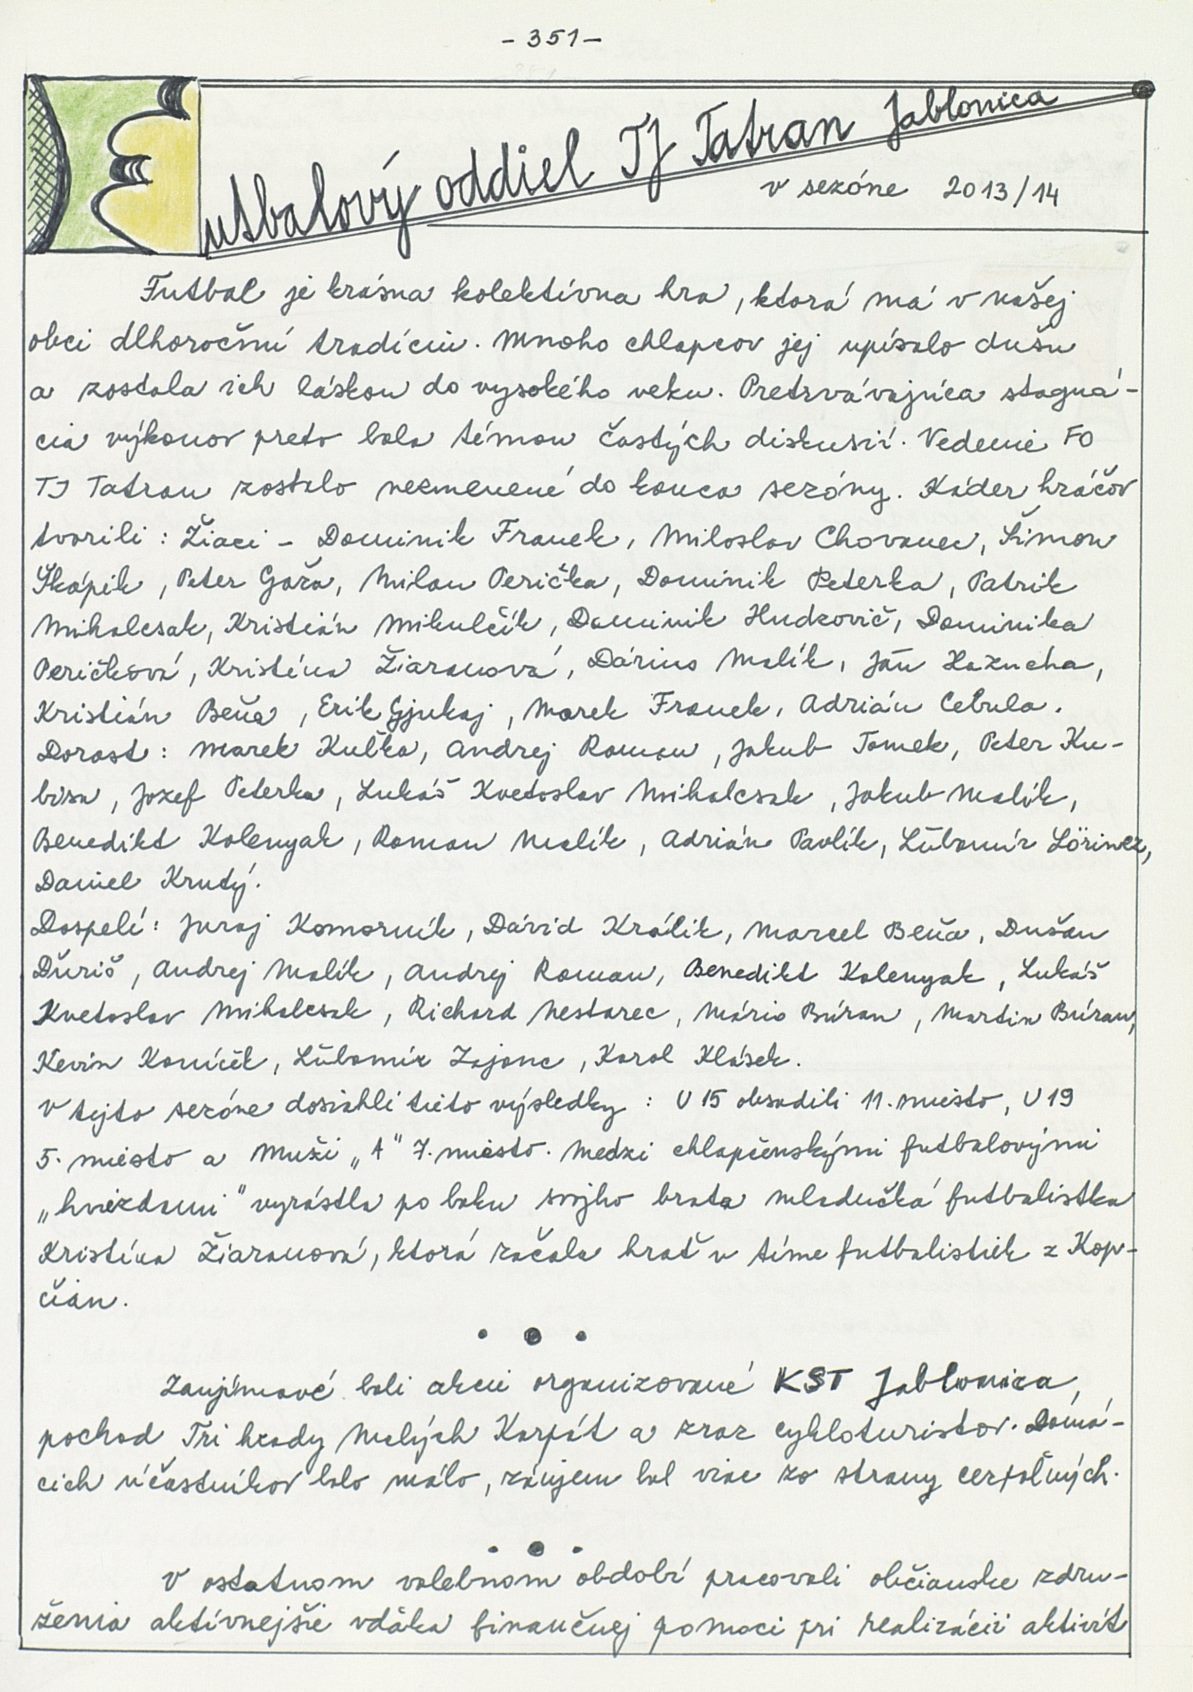 - 351 -
Futbalový oddiel TJ Tatran Jablonica
v sezóne 2013/14
Futbal je krásna kolektívna hra, ktorá má v našej
obci dlhoročnú tradíciu. Mnoho chlapcov jej upísalo dušu
a zostala ich láskou do vysokého veku. Pretrvávajúca stagná-
cia výkonov preto bola témou častých diskusií. Vedenie FO
TJ Tatran zostalo nezmenené do konca sezóny. Káder hráčov
tvorili : Žiaci - Dominik Franek, Miloslav Chovanec, Šimon
Skápik, Peter Gáža, Milan Perička, Dominik Peterka, Patrik
Mihalcsak, Kristián Mikulčík, Dominik Hudkovič, Dominika
Peričková, Kristína Žiaranová, Dárius Malík, Ján Hazucha,
Kristián Beňa, Erik Gjukaj, Marek Franek, Adrián Cebula.
Dorast : Marek Kuľka, Andrej Roman, Jakub Tomek, Peter Ku-
bisa, Jozef Peterka, Lukáš Kvetoslav Mihalcsak, Jakub Malík,
Benedikt Kolenyak, Roman Malík, Adrián Pavlík, Ľubomír Lörincz,
Daniel Krutý.
Dospelí : Juraj Komorník, Dávid Králik, Marcel Beňa, Dušan
Ďuriš, Andrej Malík, Andrej Roman, Benedikt Kolenyak, Lukáš
Kvetoslav Mihalcsak, Richard Nestarec, Mário Búran, Martin Búran,
Kevin Koníček, Ľubomír Zajonc, Karol Klásek.
V tejto sezóne dosiahli tieto výsledky : U 15 obsadili 11. miesto, U 19
5. miesto a Muži „A" 7. miesto. Medzi chlapčenskými futbalovými
„hviezdami" vyrástla po boku svojho brata mladučká futbalistka
Kristína Žiaranová, ktorá začala hrať v tíme futbalistiek z Kop-
čian.
Zaujímavé boli akcie organizované KST Jablonica,
pochod Tri hrady Malých Karpát a zraz cykloturistov. Domá-
cich účastníkov bolo málo, záujem bol viac zo strany cezpoľných.
V ostatnom volebnom období pracovali občianske zdru-
ženia aktívnejšie vďaka finančnej pomoci pri realizácii aktivít